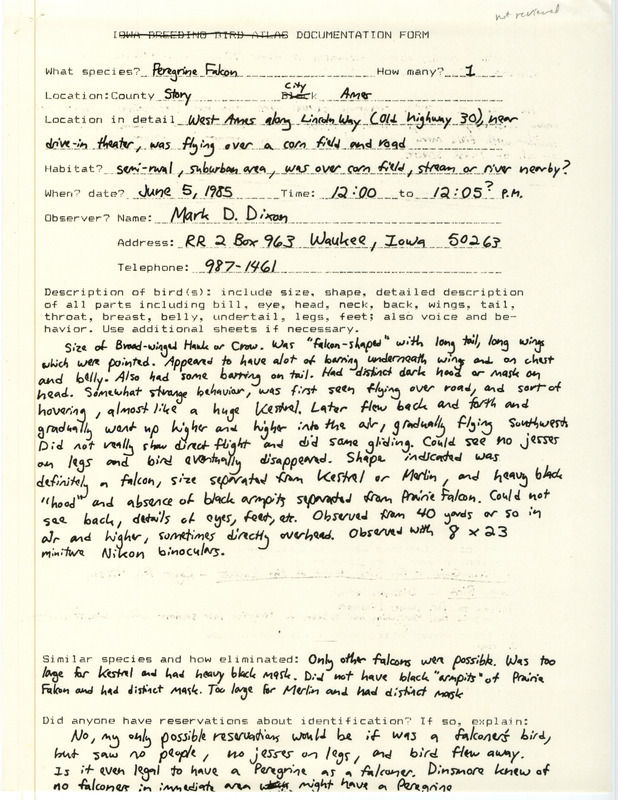 not reviewed
IOWA BREEDING BIRD ATLAS DOCUMENTATION FORM
What species? Peregrine Falcon How many? 1
Location:County Story Block City Ames
Location in detail West Ames along Lincoln Way (Old highway 30), near
drive-in theater, was flying over a corn field and road
Habitat? semi-rural, suburban area, was over corn field, stream or river nearby?
When? date? June 5, 1985 Time: 12:00 to 12:05? P.M.
Observer? Name: Mark D. Dixon
Address: RR 2 Box 963 Waukee, Iowa 50263
Telephone: 987-1461
Description of bird(s): include size, shape, detailed description
of all parts including bill, eye, head, neck, back, wings, tail,
throat, breast, belly, undertail, legs, feet; also voice and be-
havior. Use additional sheets if necessary.
Size of Broad-winged Hawk or Crow. Was "falcon-shaped" with long tail, long wings
which were pointed. Appeared to have alot of barring underneath wings and on chest
and belly. Also had some barring on tail. Had distinct dark hood or mask on
head. Somewhat strange behavior, was first seen flying over road, and sort of
hovering, almost like a huge Kestrel. Later flew back and forth and
gradually went up higher and higher into the air, gradually flying Southwest.
Did not really show direct flight and did some gliding. Could see no jesses
on legs and bird eventually disappeared. Shape indicated was
definitely a falcon, size separated from Kestrel or Merlin, and heavy black
"hood" and absence of black armpits separated from Prairie Falcon. Could not
see back, details of eyes, feet, etc. Observed from 40 yards or so in
air and higher, sometimes directly overhead. Observed with 8 x 23
miniture Nikon binoculars.
Similar species and how eliminated: Only other falcons were possible. Was too
large for Kestrel and had heavy black mask. Did not have black "armpits" of Prairie
Falcon and had distinct mask. Too large for Merlin and had distinct mask
Did anyone have reservations about identification? If so, explain:
No, my only possible reservations would be if was a falconer's bird,
but saw no people, no jesses on legs, and bird flew away.
Is it even legal to have a Peregrine as a falconer. Dinsmore knew of
no falconers in immediate area might have a Peregrine